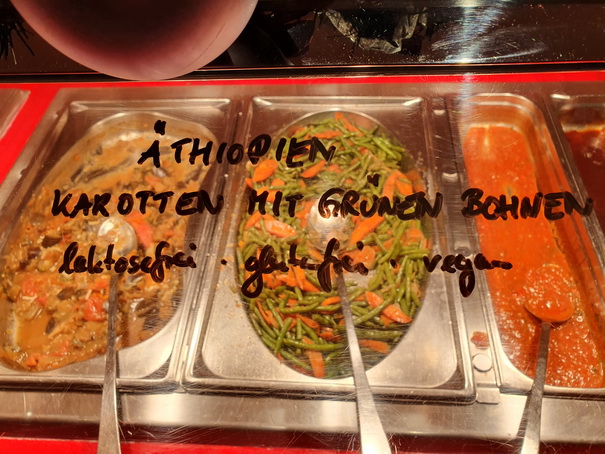 ÄTHIOPIEN
KAROTTEN MIT GRÜNEN BOHNEN
laktosefrei · glutenfrei · vegan